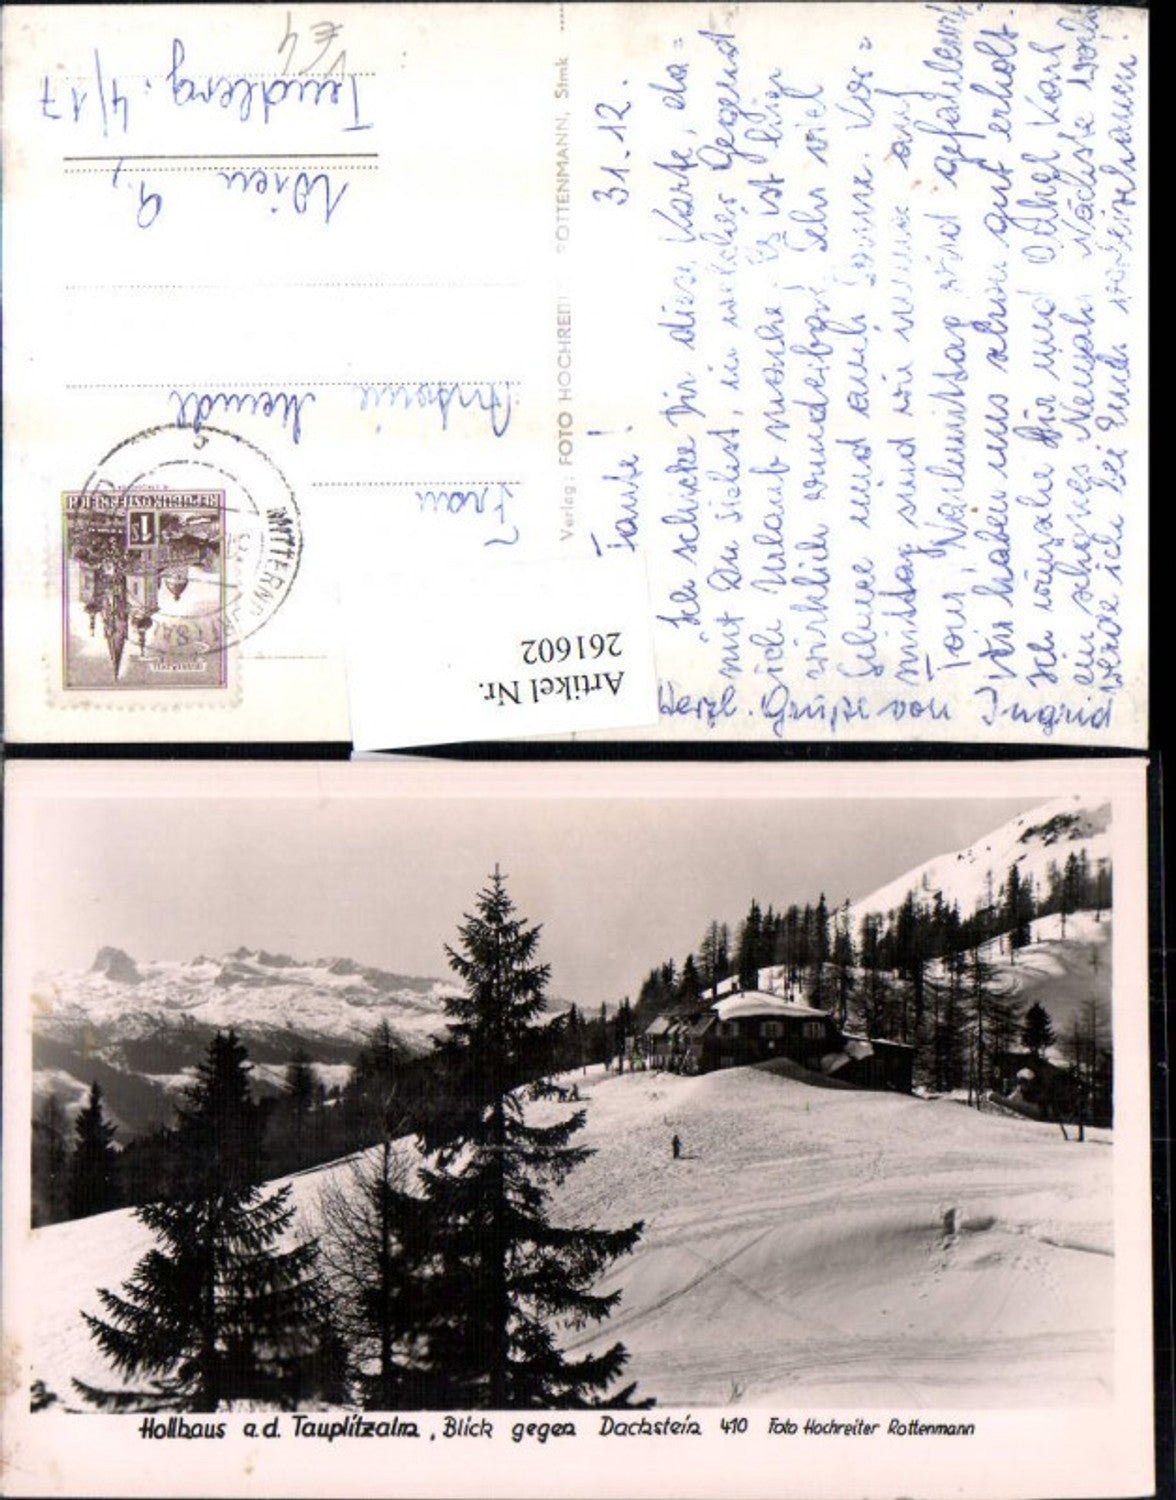 31.12.
Tante!
Ich schicke Dir diese Karte, da=
mit Du siehst, in welcher Gegend
ich Urlaub mache. Es ist hier
wirklich wunderbar! Sehr viel
Schnee und auch Sonne. Vor=
mittag sind wir immer auf
Tour, Nachmittag wird gefaulenzt.
Wir haben uns schon gut erholt.
Ich wünsche Dir und Onkel Karl
ein schönes Neujahr. Nächste Woche
werde ich bei Euch vorbeischauen.
Herzl. Grüße von Ingrid
Verlag: FOTO HOCHREI ROTTENMANN, Stmk
Frau
Antonie
Mendl
Wien 9.,
Tendlerg. 4/17
REPUBLIK ÖSTERREICH
1 S
MITTERND
Artikel Nr.
261602
Hollhaus a.d. Tauplitzalm, Blick gegen Dachstein 410 Foto Hochreiter Rottenmann